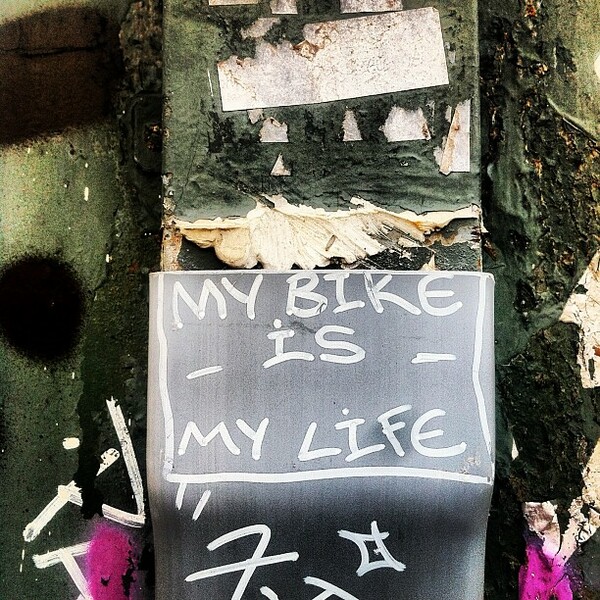 MY BIKE
- iS -
MY LiFE